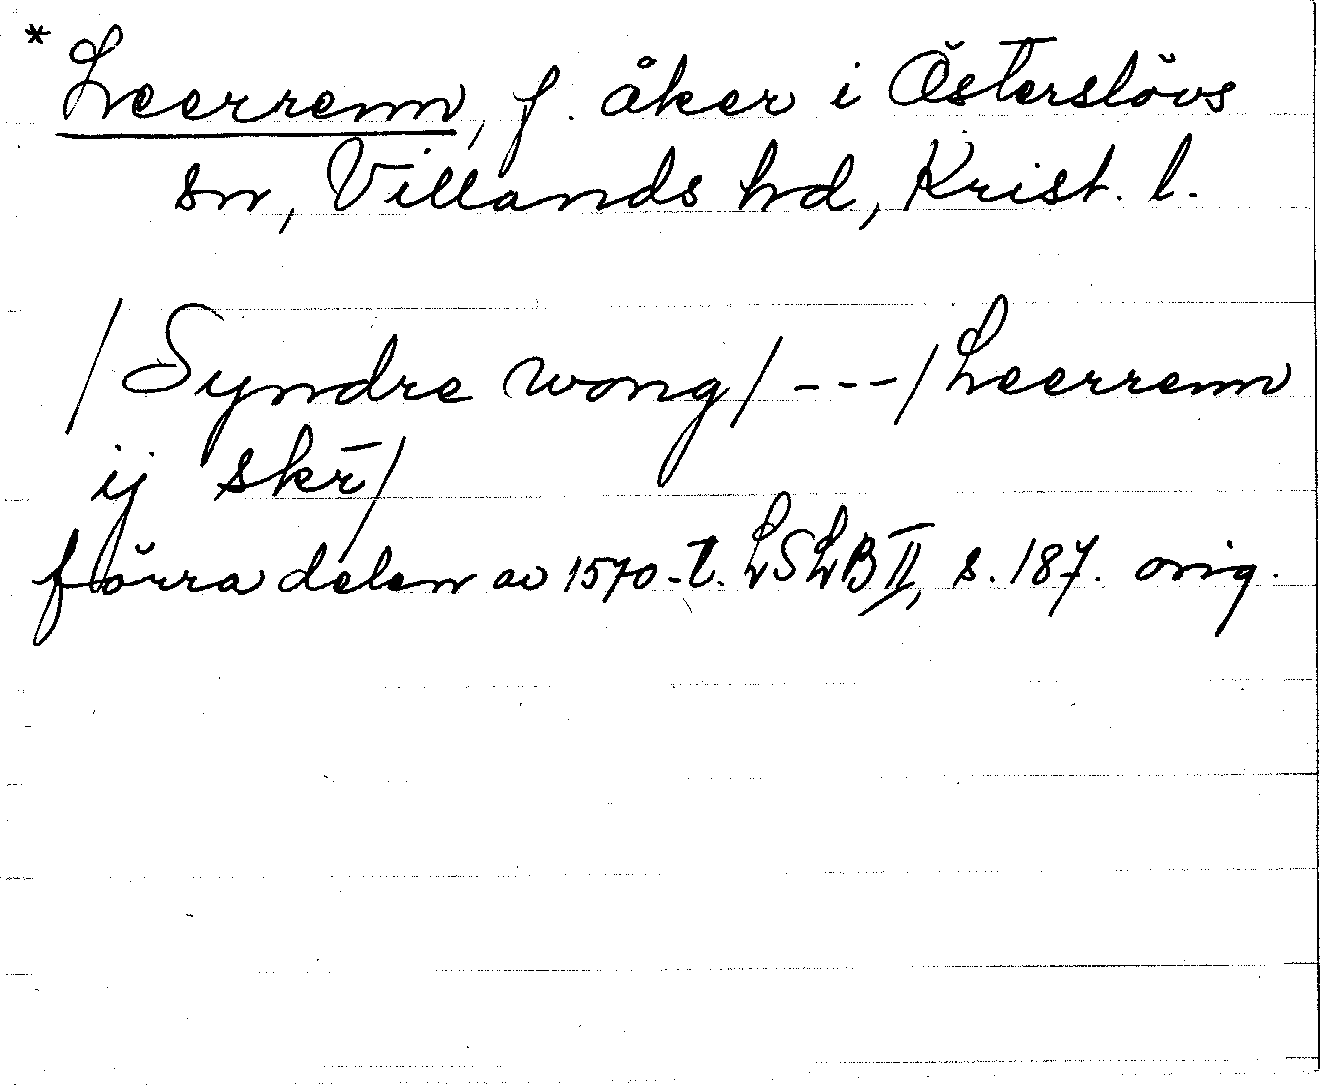 * Leerrem, f. åker i Österslövs
sn, Villands hd, Krist. l.
/Syndre wong/ ---/Leerrem
ij skr̄/
förra delen av 1570-t. LSLB II, s. 187. orig.